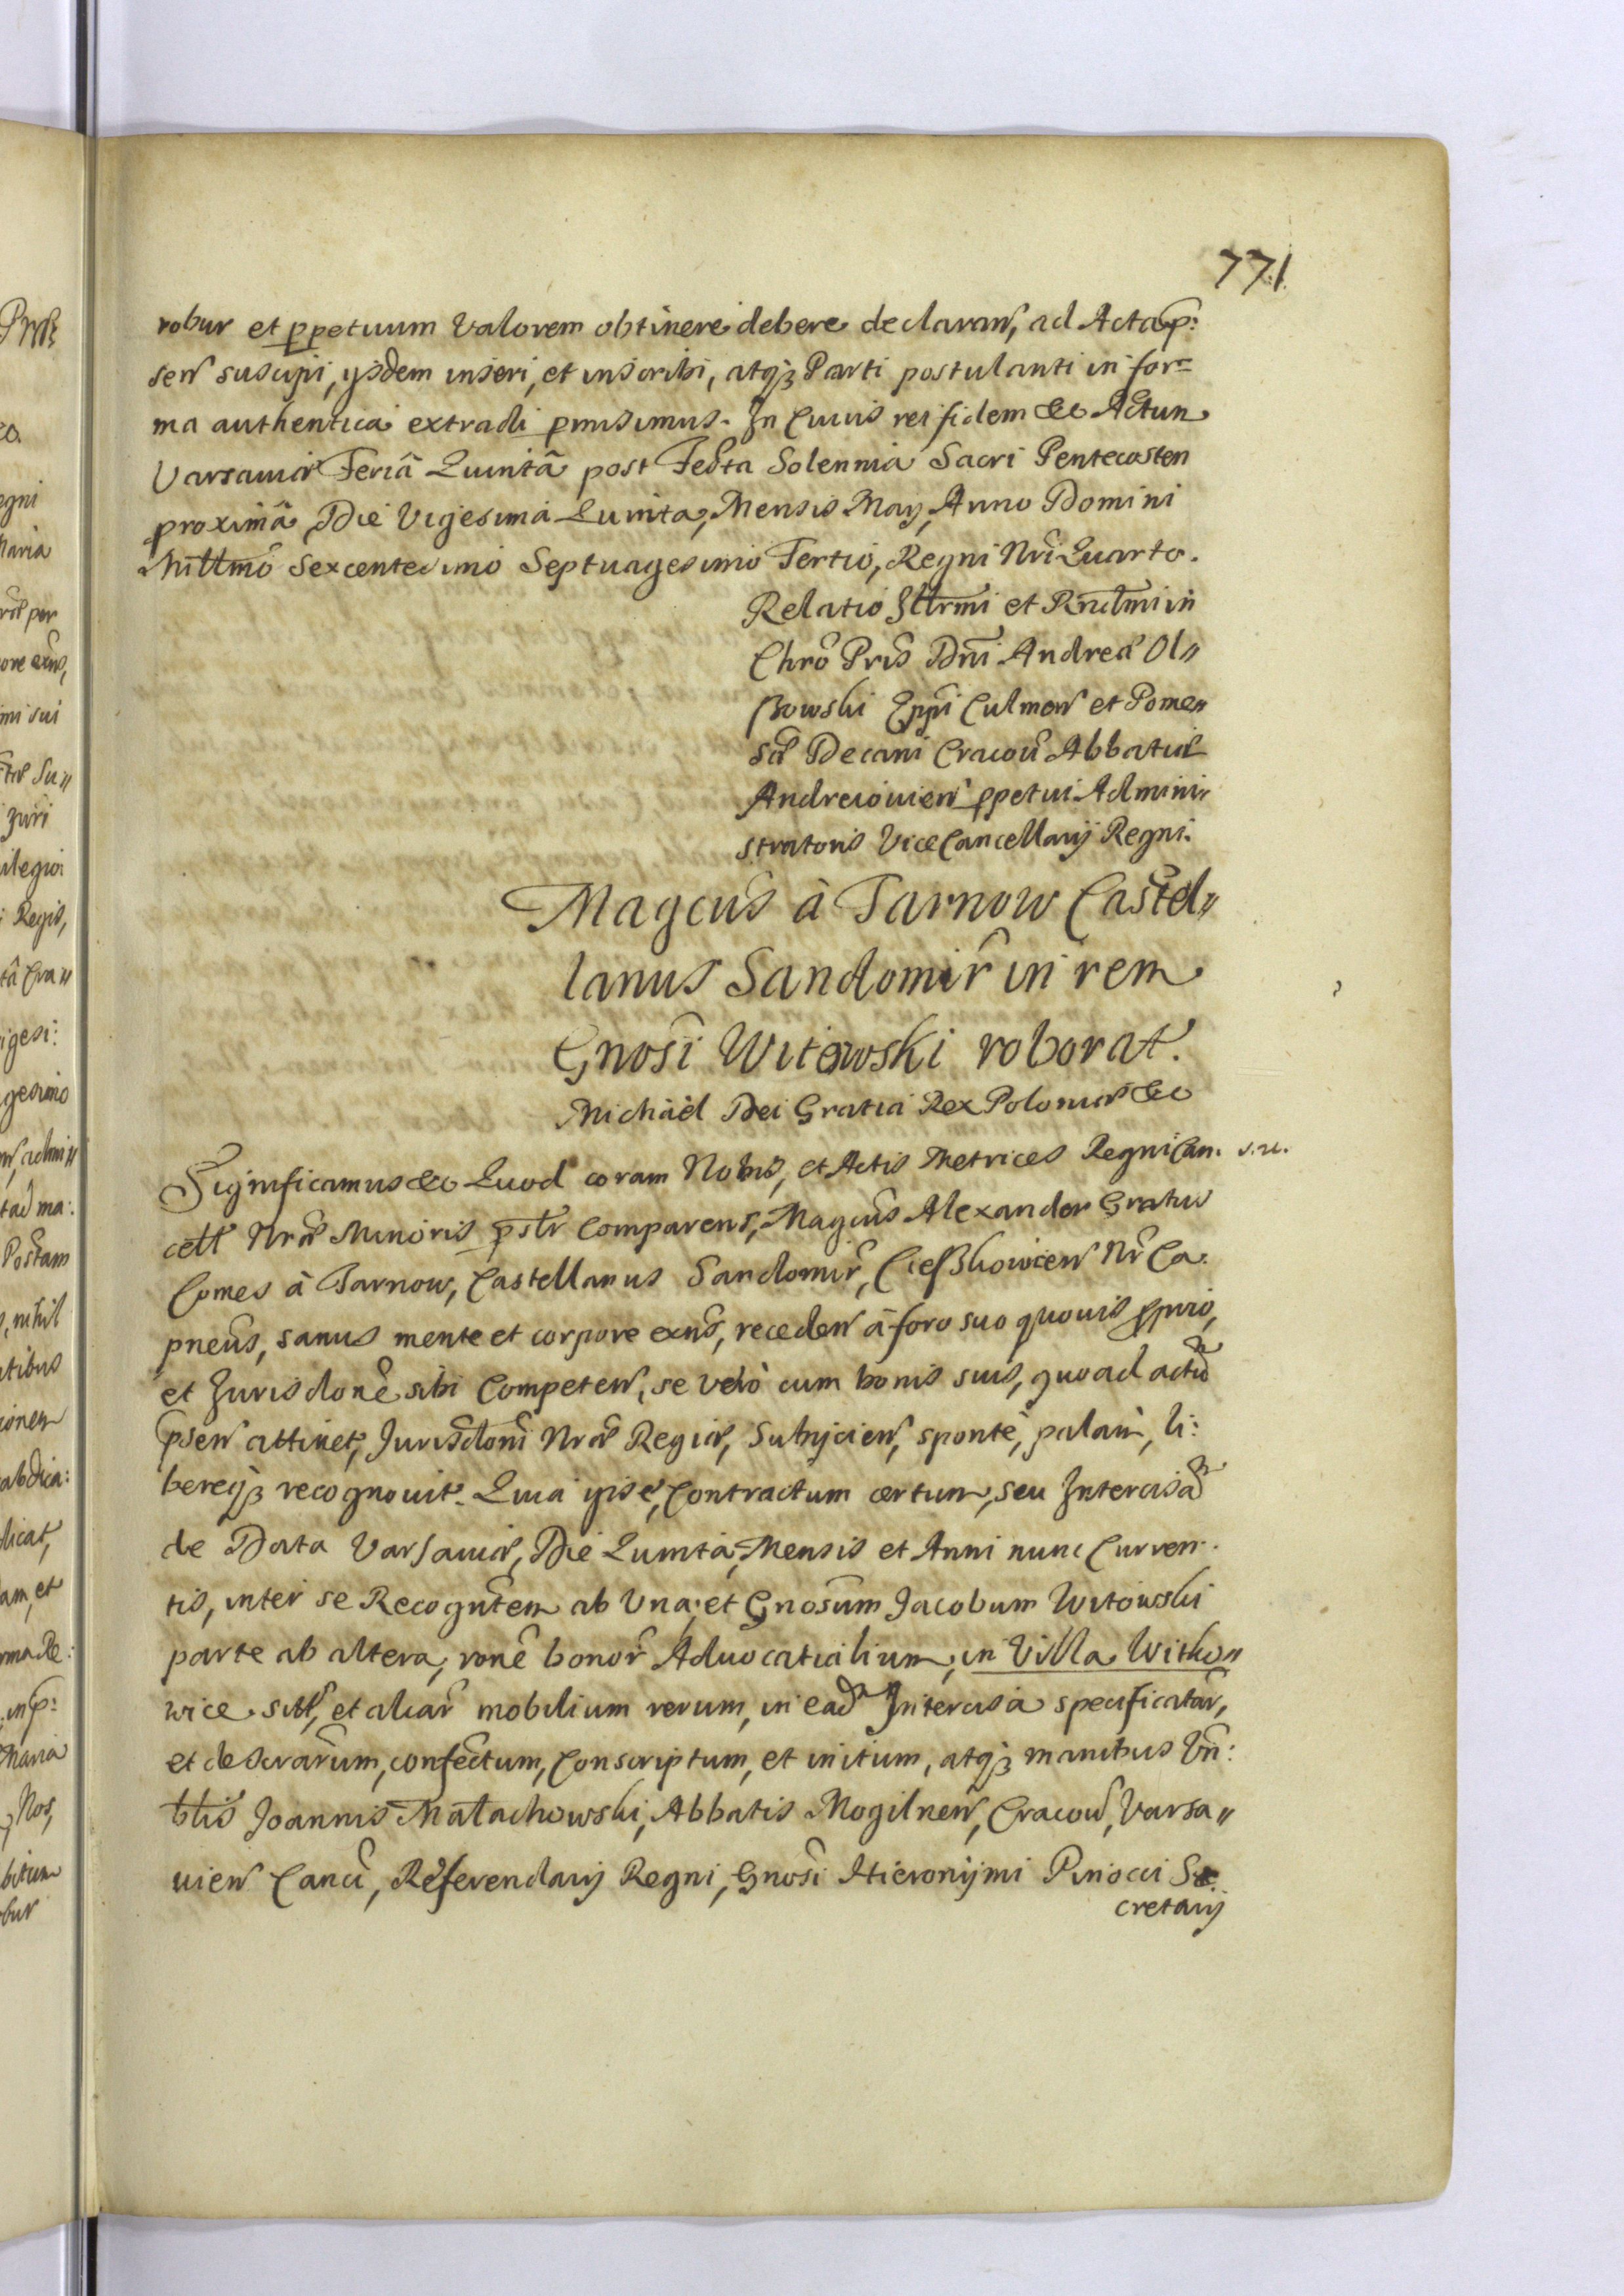 771
robur et ppetuum Valorem obtinere debere declaran, ad Acta p:
sen suscipi, ysdem inseri, et inscribi, atq3 Parti postulanti in for=
ma authentica extradi pmisimus. In Cuius rei fidem &c Actum
Varsaviæ Feriâ Quintâ post Festa Solennia Sacri Pentecosten
proximâ Die Vigesima Quinta, Mensis May, Anno Domini
Millmo Sexcentesimo Septuagesimo Tertio, Regni Nri Quarto.
Relatio Illrmi et Rndmi in
Chro Pris Dni Andreæ Ol〃
szowski Eppi Culmen et Pome〃
sa Decani Cracou Abbatiæ
Andreiouien ppetui Admini〃
stratoris ViceCancellarij Regni.
Magcus à Tarnow Castel〃
lanus Sandomir in rem
Gnosi Witowski roborat.
Michaël Dei Gratia Rex Poloniæ &c
Significamus &c Quod coram Nobis, et Actis Metrices Regni Can.
cell Nræ Minoris pstr Comparens, Magcus Alexander Gratus
Comes à Tarnow, Castellanus Sandomir, Ciesskowicen Nr Ca.
pneus, sanus mente et corpore exns, receden â foro suo quovis pprio,
et Jurisdone sibi Competen, se verò cum bonis suis, quoad actu
psen attinet, Jurisdoni Nræ Regiæ, Subijcien, sponte, palam, li:
bereq3 recognovit. Quia ipse, Contractum certum, seu Intercisa
de Data Varsaviæ, Die Quinta, Mensis et Anni nunc Curren.
tis, inter se Recogntem ab Una, et Gnosum Jacobum Witowski
parte ab altera, rone bonor Advocatialium, in Villa Witko〃
wice sitt, et aliar mobilium rerum, in ead Intercisa specificatar,
et descrarum, confectum, Conscriptum, et initium, atq3 manibus Vn:
blis Joannis Małachowski, Abbatis Mogilnen, Cracou, Varsa〃
vien Canci, Referendarij Regni, Gnosi Hieronijmi Pinocci Se
cretarij